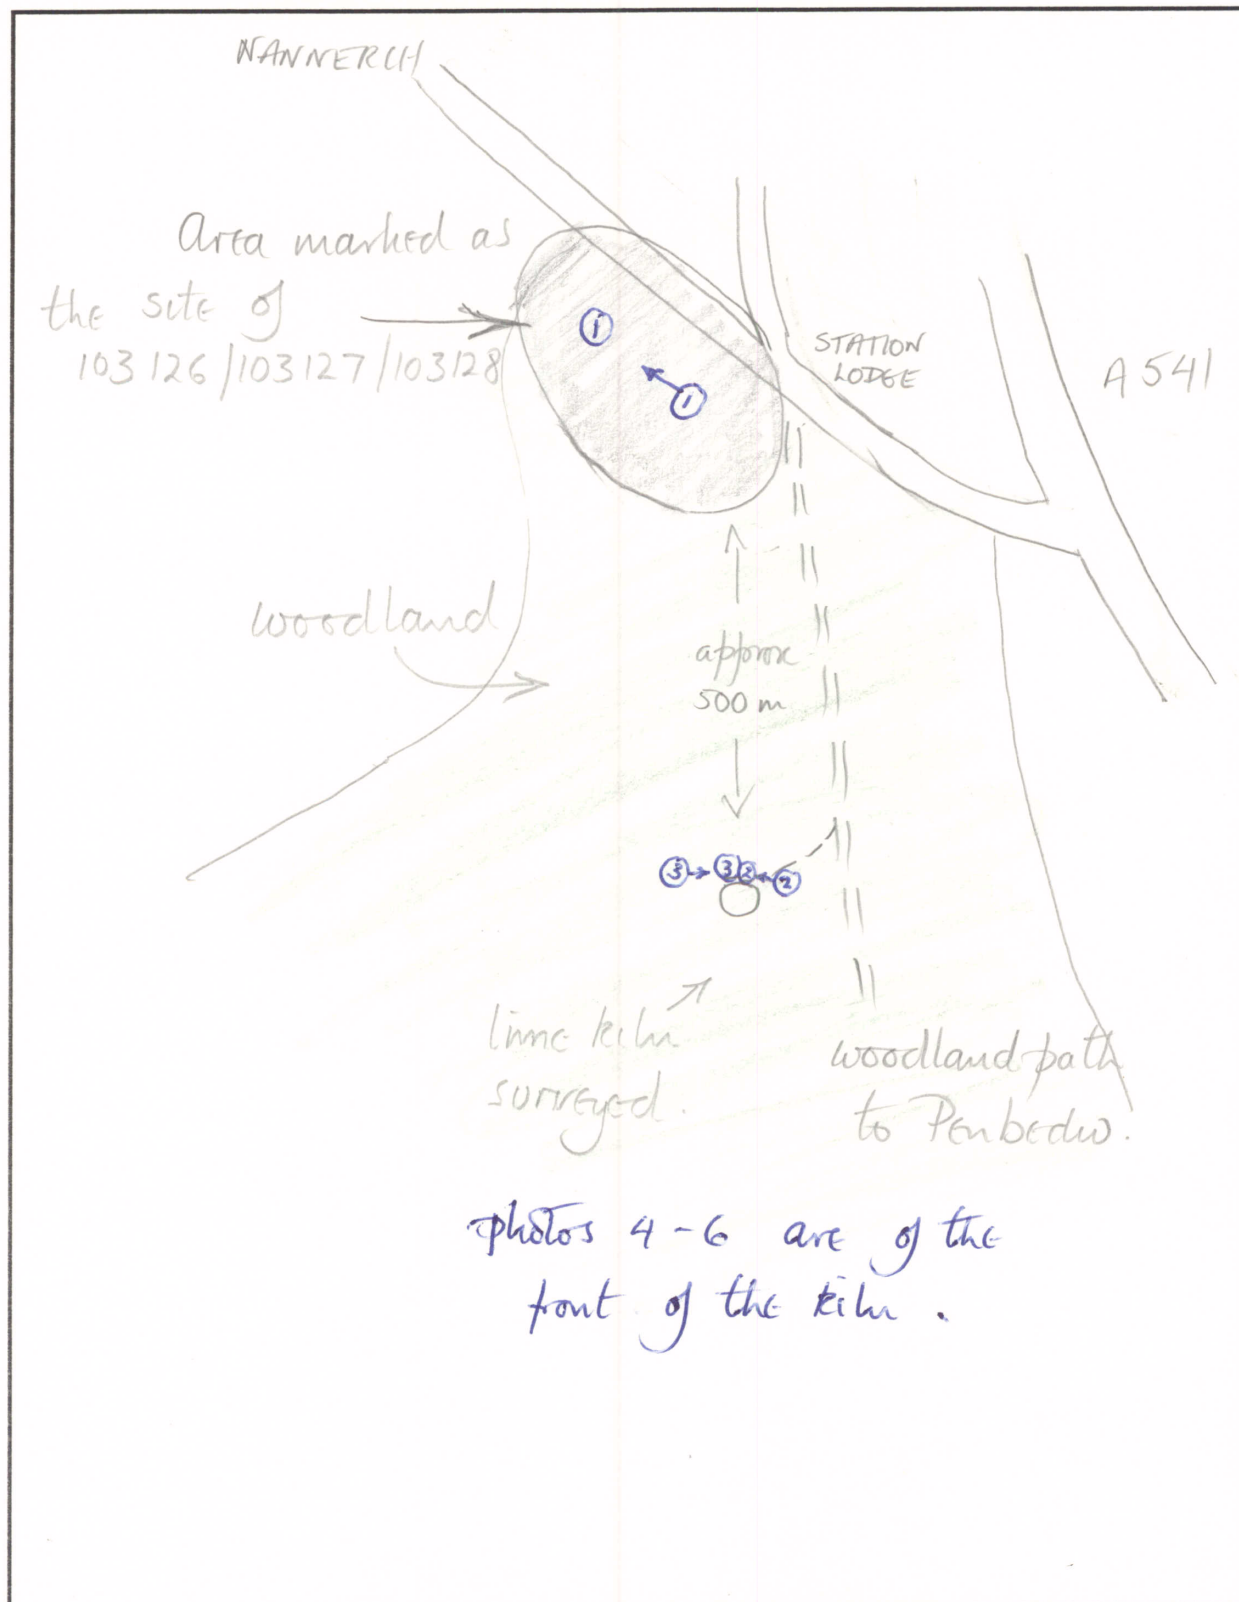 NANNERCH
Area marked as
the site of
103126/103127/103128
1
1
STATION
LODGE
A541
woodland
approx
500 m
3 3 2 2
lime kiln
surveyed.
woodland path
to Penbedw.
photos 4-6 are of the
front of the kiln.